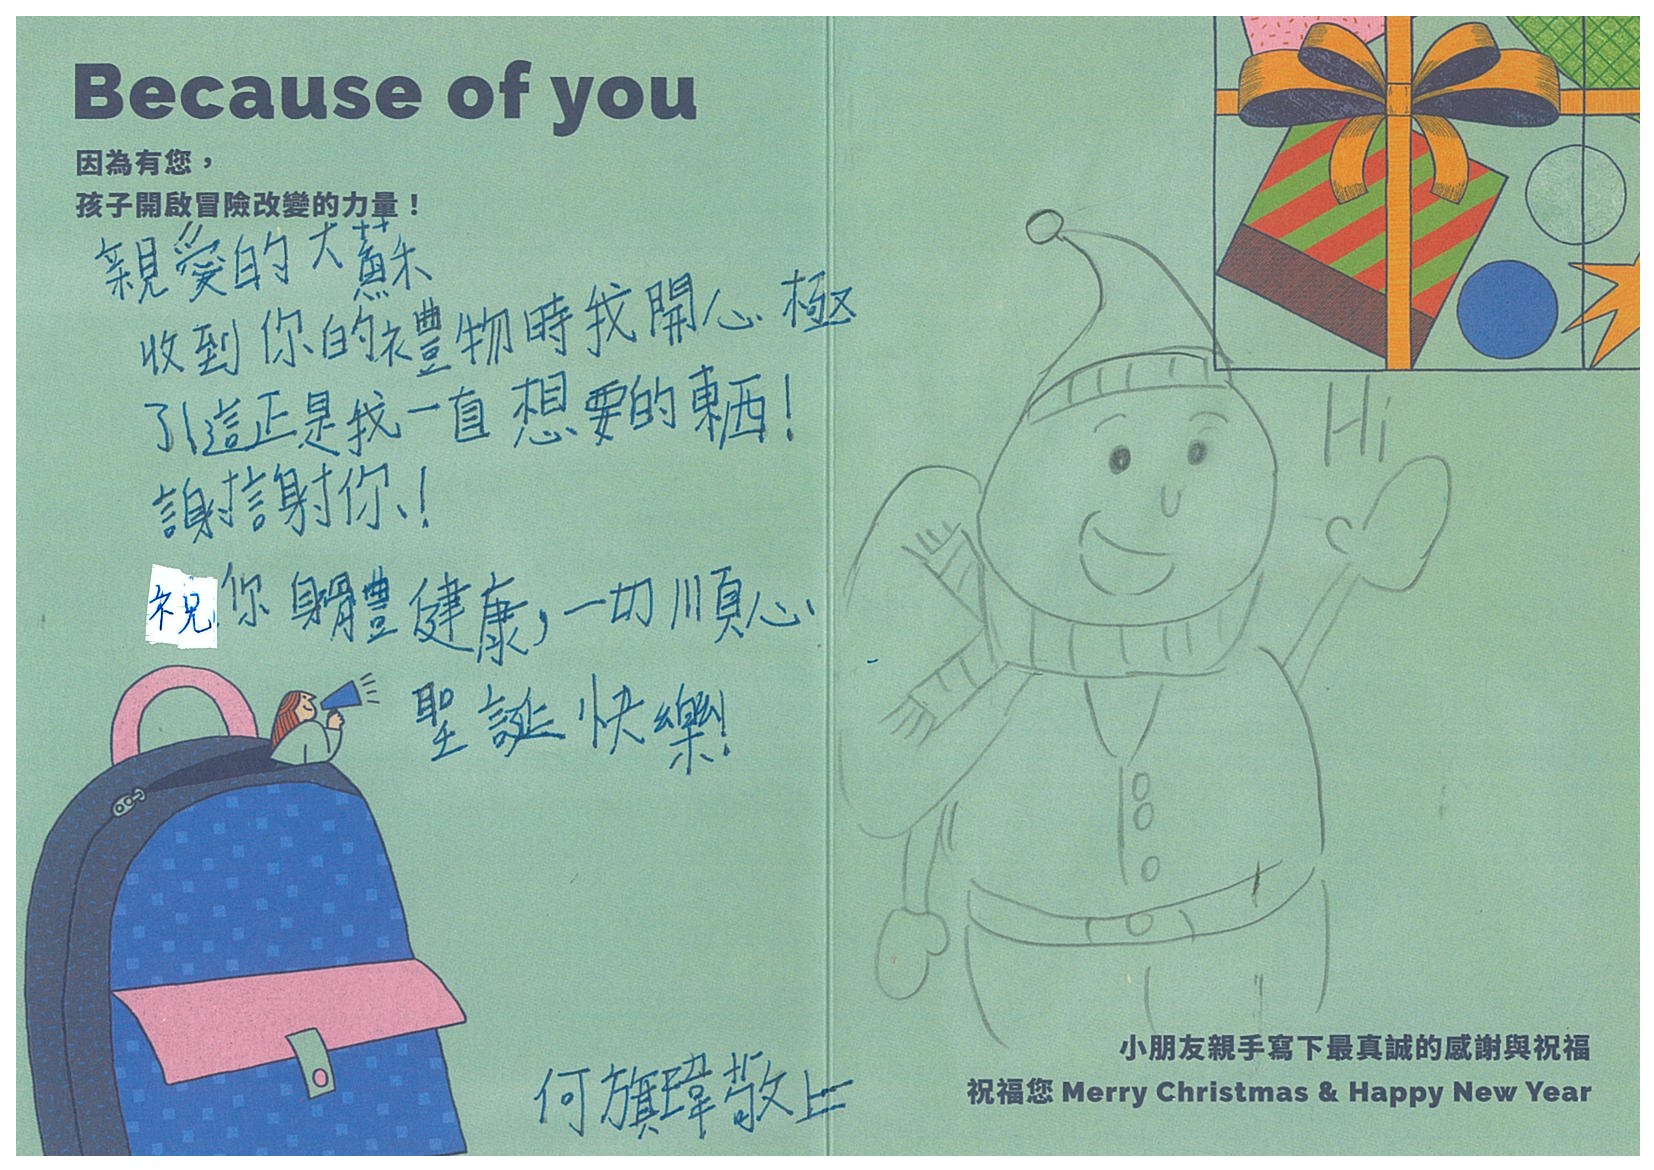 Because of you
因為有您，
孩子開啟冒險改變的力量！
親愛的大蘇
收到你的禮物時我開心極
了這正是我一直想要的東西！
謝謝你！
祝你身體健康，一切順心
聖誕快樂！
何旗瑋敬上
Hi
小朋友親手寫下最真誠的感謝與祝福
祝福您 Merry Christmas & Happy New Year